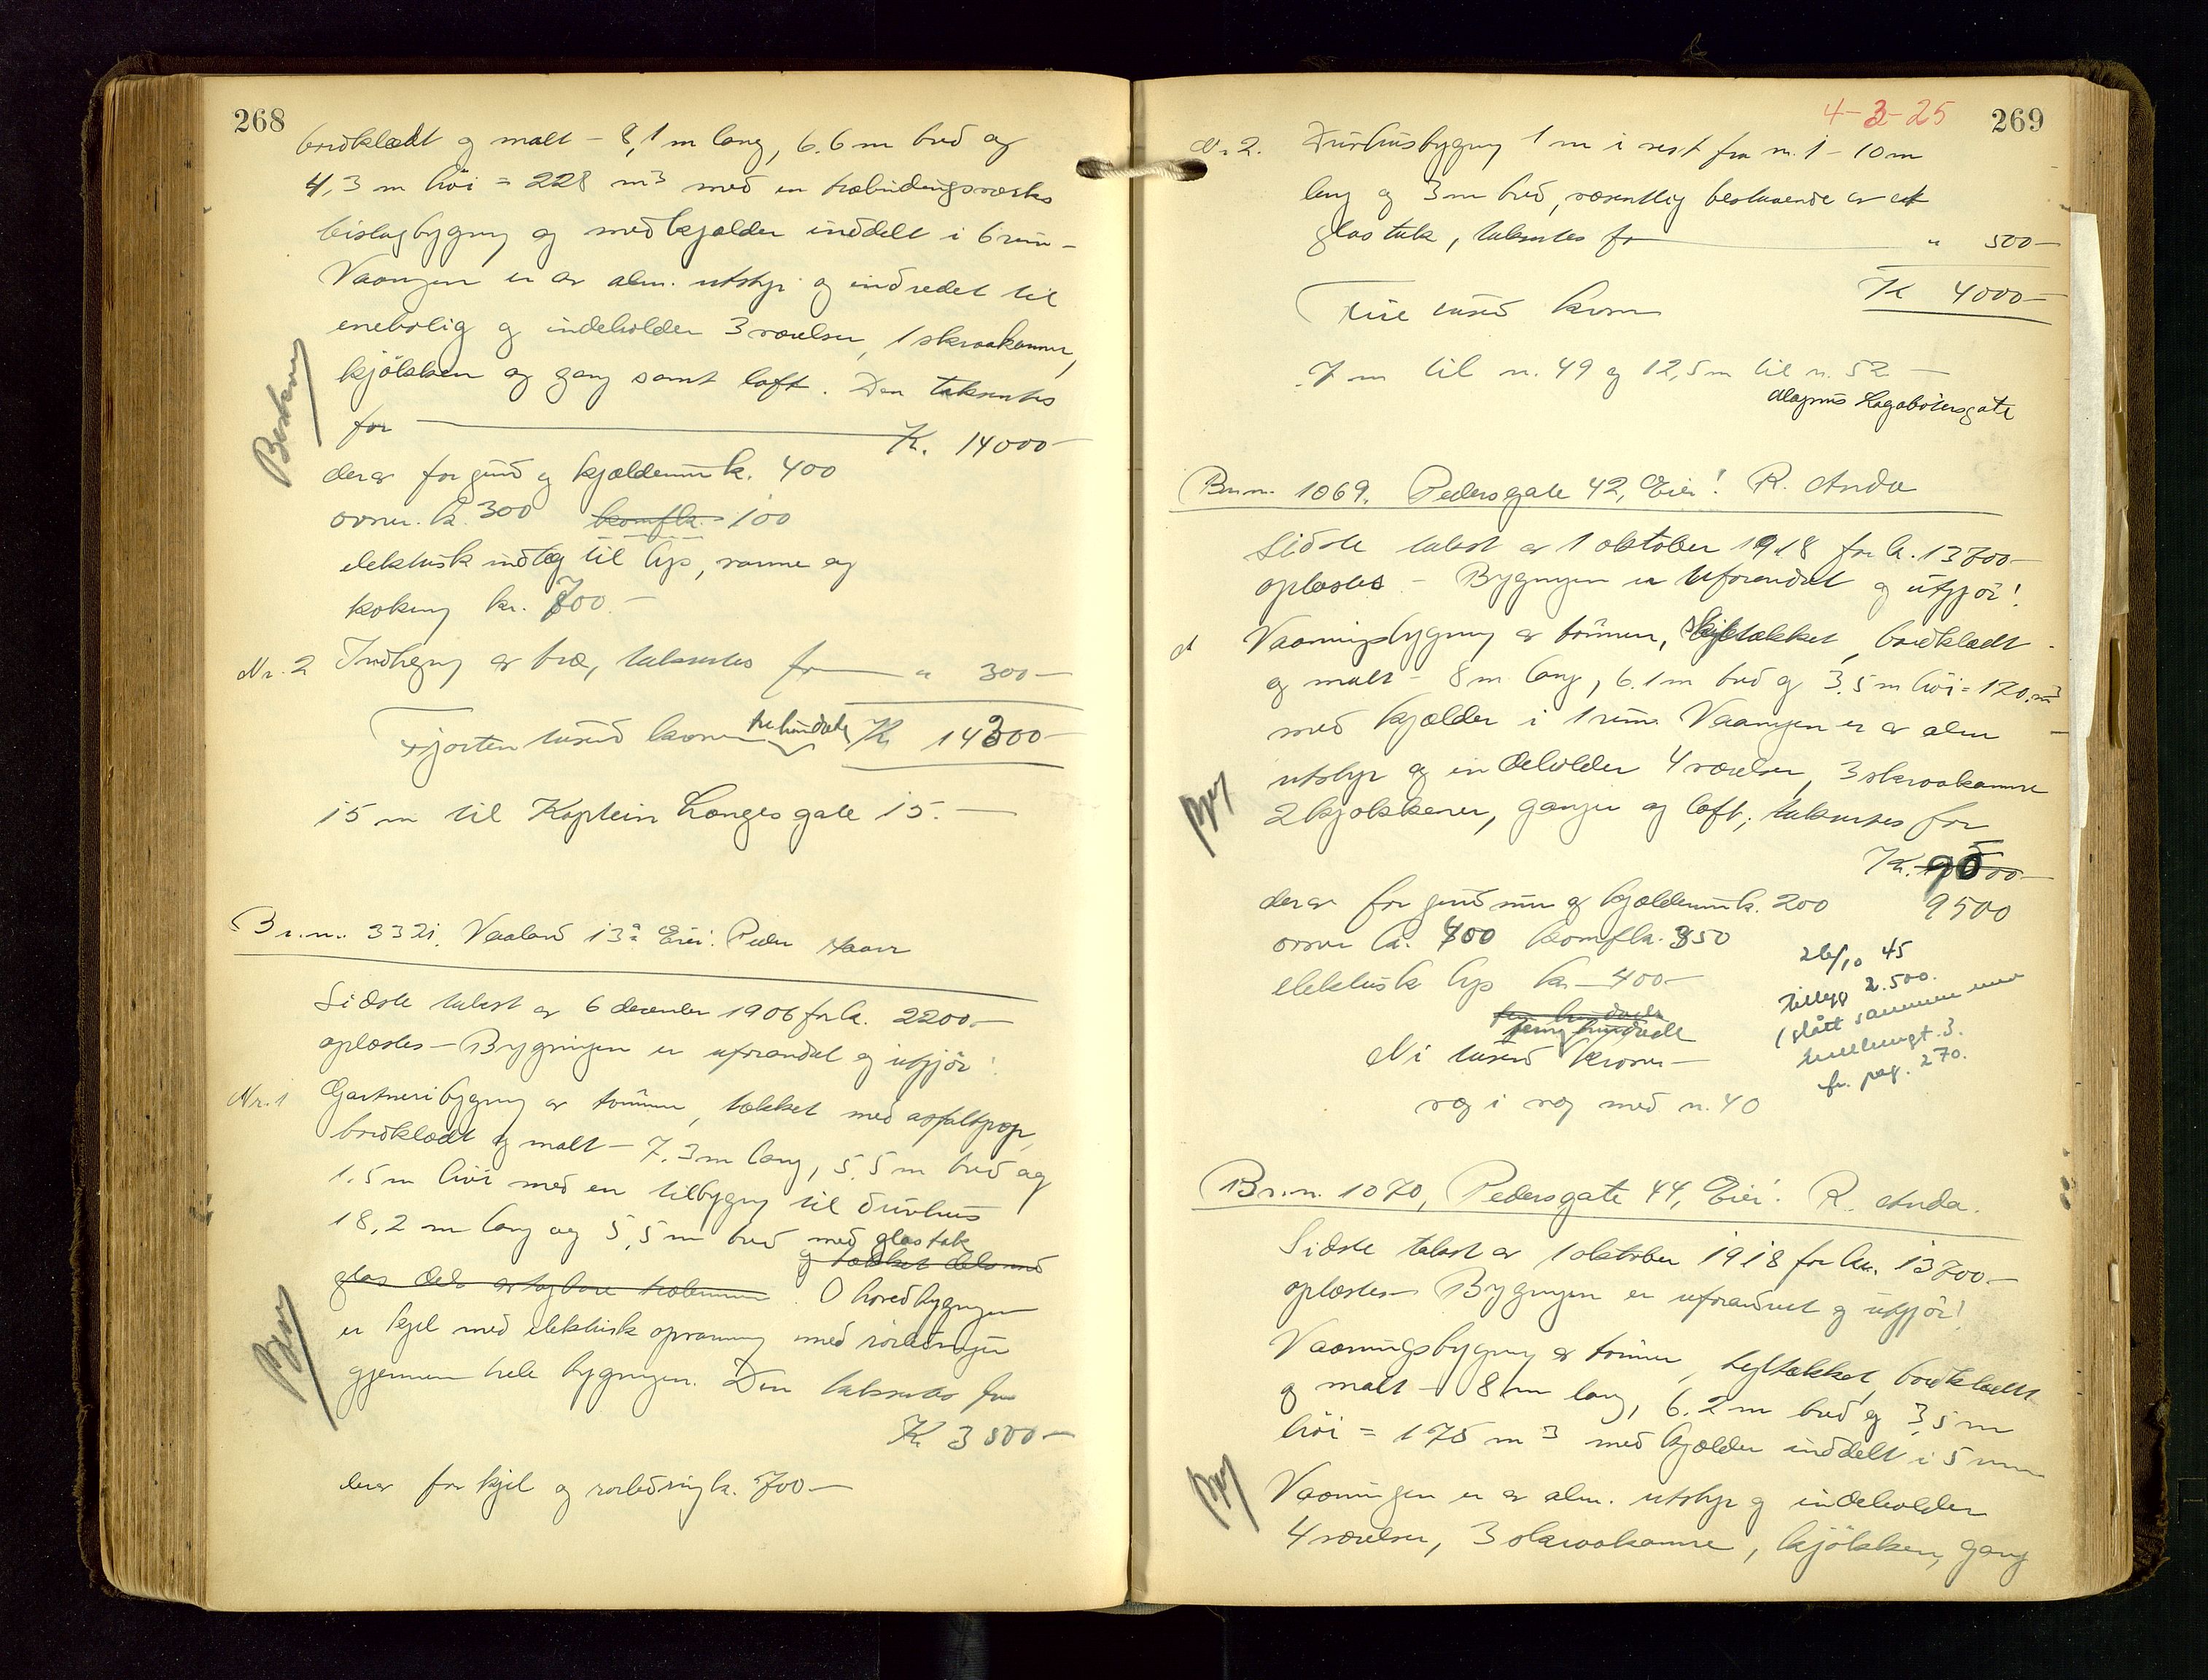 268
bordklædt og malt - 8,1 m lang, 6.6 m bred og
4,3 m høi = 228 m3 med en træbindingsverks
bislagbygning og med kjælder inddelt i 6 rum -
Vaaningen er av alm. utstyr og indredet til
enebolig og indeholder 3 værelser, 1 skraakammer,
kjökken og gang samt loft. Den takseres
for K. 14000-
derav for grund og kjældermur k. 400
ovner k. 300 komfk. 100
elektrisk indlæg til lys, varme og
kokning kr. 700.-
Nr. 2 Indhegning av træ, takseres for " 300-
Fjorten tusind kroner trehundrede K 14300-
15 m til Kaptein Langes gate 15.-
Br.nr. 3321. Vaaland 13a Eier: Peder
Sidste takst av 6 december 1906 for k. 2200.-
oplæstes - Bygningen er uforandret og utgjör:
Nr. 1 Gartneribygning av tömmer, tækket med asfaltpap,
bordklædt og malt - 7.3 m lang, 5.5 m bred og
1.5 m höi med en tilbygning til drivhus
18,2 m lang og 5,5 m bred med glastak
og tækket dels med
glas dels I hovedbygningen
er kjel med elektrisk opvarming med rörledninger
gjennem hele bygningen. Den takseres for
K 3500-
derav for kjel og rörledning k. 700-
4-3-25 269
Nr. 2. Drivhusbygning 1 m i vest for nr. 1 - 10 m
lang og 3 m bred, væsentlig bestaaende av et
glastak, takseres for " 500-
Fire tusind kroner K 4000-
7 m til nr. 49 og 12,5 m til nr. 52 -
Magnus Lagabötersgate
Br.nr. 1069. Pedersgate 42, Eier: R. Anda
Sidste takst av 1 oktober 1918 for k. 13700-
oplæstes - Bygningen er uforandret og utgjör:
Vaaningsbygning av tömmer, skifertækket, bordklædt
og malt - 8 m lang, 6.1 m bred og 3.5 m höi = 170 m3
med kjælder i 1 rum. Vaaningen er av alm
utstyr og indeholder 4 værelser, 3 skraakammer
2 kjökkener, ganger og loft; takseres for
K. 9000-
derav for grundmur og kjældermur k. 200 9500
ovner k. 700 komfk. 350
elektrisk lys k. 400-
26/10 45
tillegg 2.500.
(slått sammen med
fr. pag. 270.
fem hundrede
fem hundrede
Ni tusind kroner -
væg i væg med nr. 40
Br.nr. 1070, Pedersgate 44, Eier: R. Anda.
Sidste takst av 1 oktober 1918 for kr. 13700.-
oplæstes - Bygningen er uforandret og utgjör:
Vaaningsbygning av tömmer, tegltækket, bordklædt
og malt - 8 m lang, 6.2 m bred og 3,5 m
höi = 175 m3 med kjælder inddelt i 5 rum
Vaaningen er av alm. utstyr og indeholder
4 værelser, 3 skraakammer, kjökken, gang